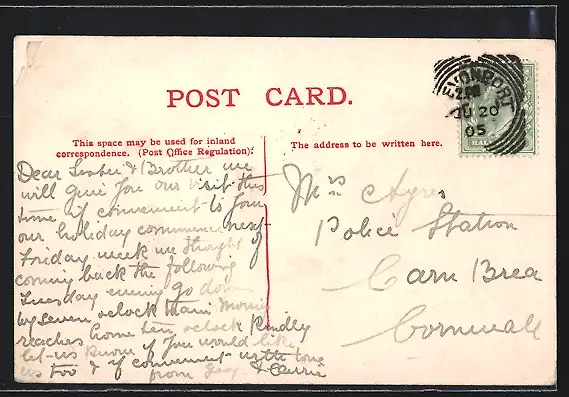 POST CARD.
This space may be used for inland
correspondence. (Post Office Regulation).
The address to be written here.
EVONPORT
JU 20
05
HAL
Dear Sister & Brother we
will give you our visit this
time if convenient to you
our holiday commence next
Friday week we thought of
coming back the following
Tuesday evening go down
by seven oclock train
reaches home ten oclock Kindly
let us know if you would like
us Too & if convenient with love
from Geo & Carrie
Mrs Ayres
Police Station
Carn Brea
Cornwall